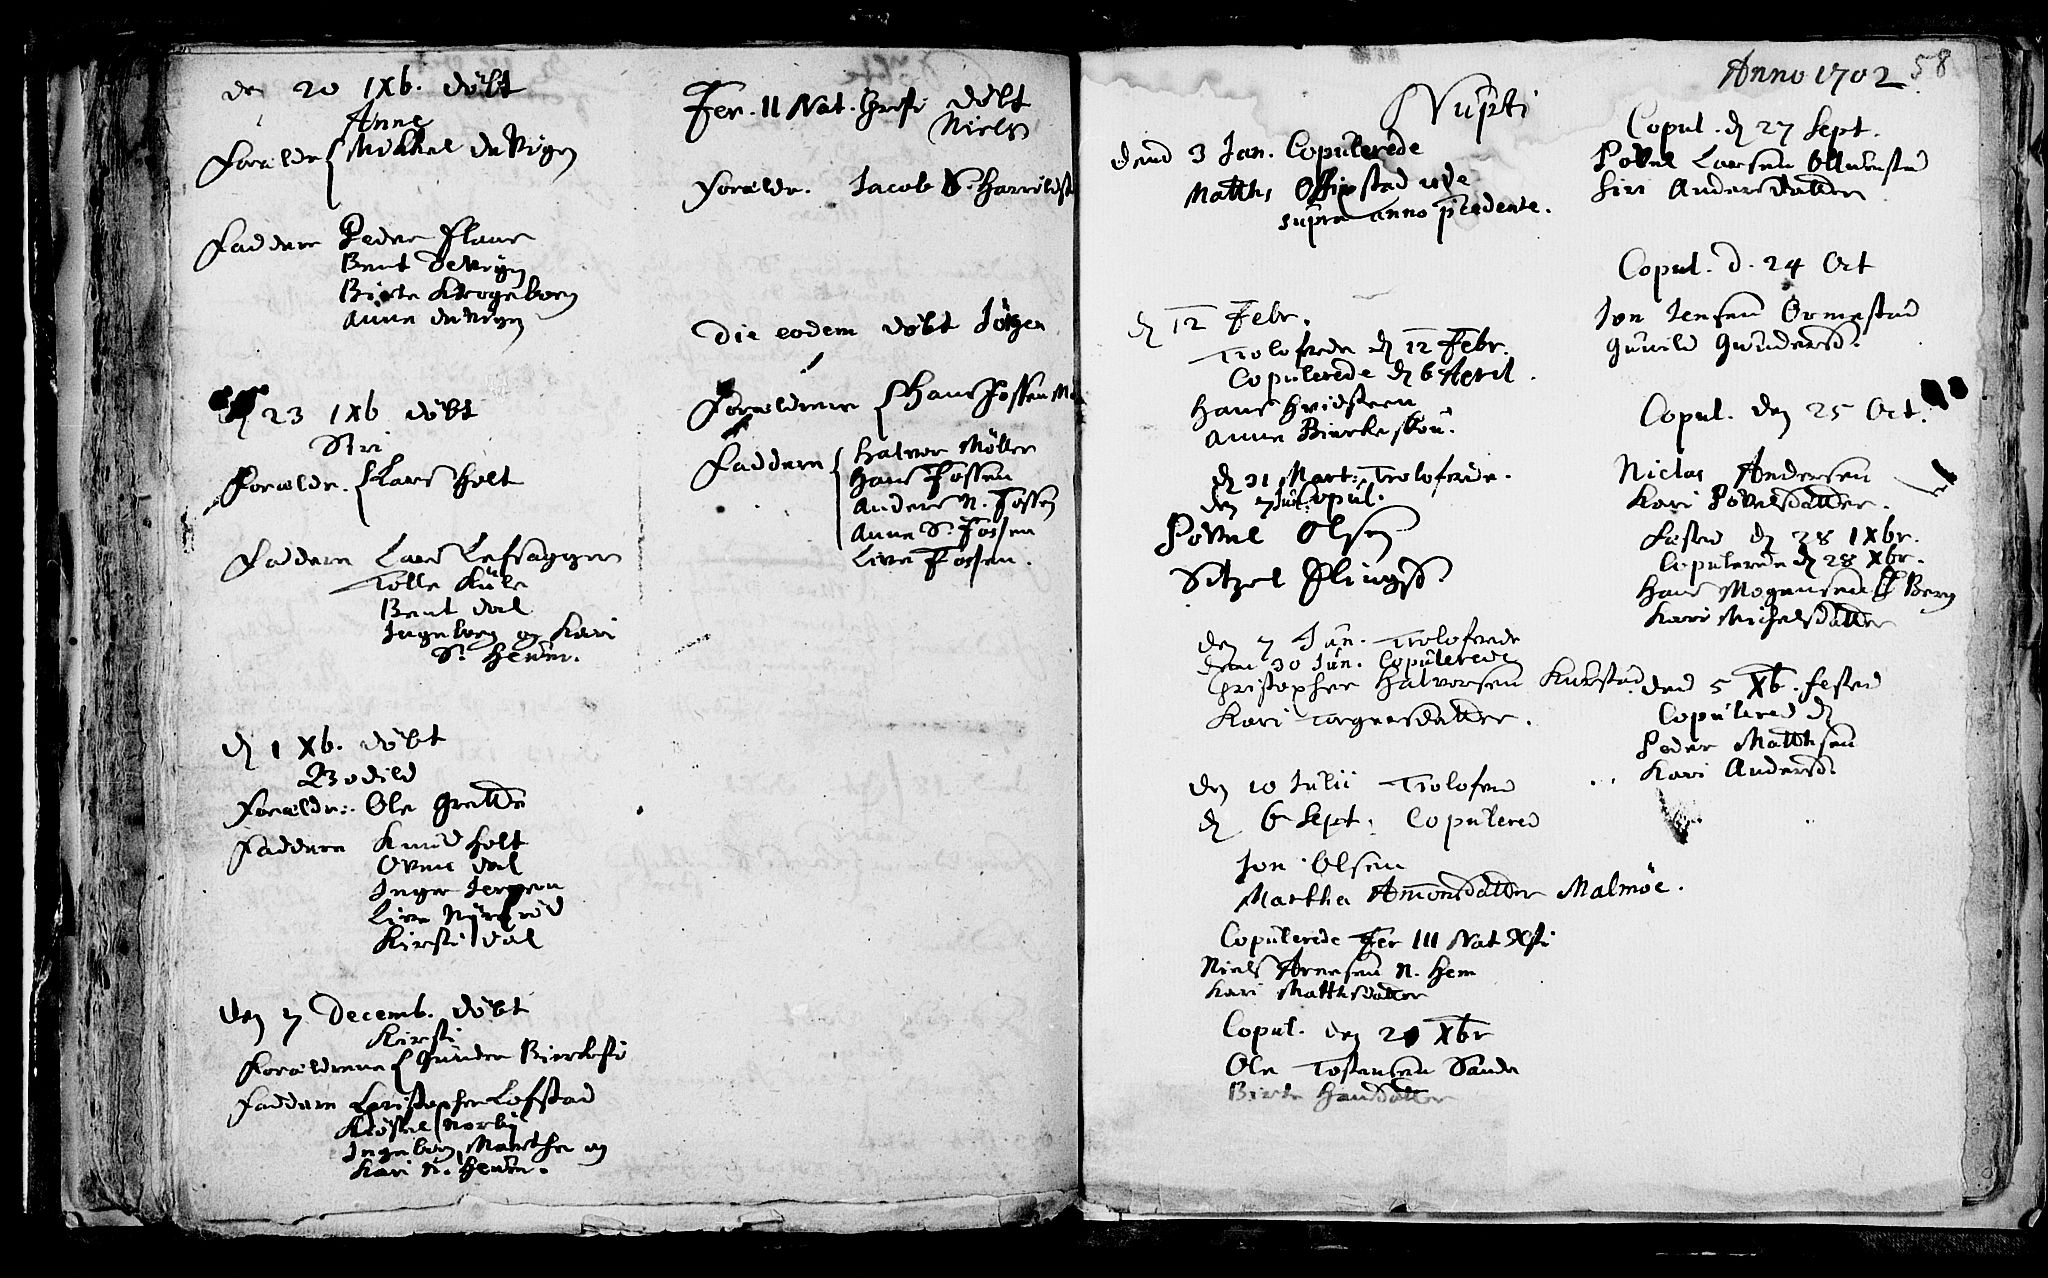 den 20 IXb. døbt
Anne
Forældr { Mikkel deVigen
Faddere Peder Flaue
Bent DeVigen
Birte Krogeborg
Anne deVigen
d 23 IXb døbt
Siri
Forældr. { Lars Holt
Faddere Lars Lefsaggere
Tolle Kule
Bent dal
Ingeborg og Kari
S. Heum.
d 1 Xb. døbt
Bodild
Forældr: Ole Grette
Faddere Knud Holt
Oven dal
Inger
Live
Kirsti dal
den 7 Decemb. døbt
Kirsti
Forældrene { Gunder
Faddere Christopher Lofstad
Norby
Ingeborg, Marthe og
Kari N. Heum.
Fer. II Nat. Christi døbt
Niels
Forældr. Jacob S. Harrildst
Die eodem døbt Jørgen
Forældrene { Hans Fossen
Faddere { Halvor Møller
Hans Fossen
Anders N. Fossen
Anne S. Fossen
Live Fossen.
Anno 1702 58
Nupti
dend 3 Jan. Copulerede
Matths
supra anno præcedente.
d 12 Febr.
Trolofvede d 12 Febr.
Copulerede d 6 April.
Hans Hvidsteen
Anne Bierkeskou.
d 31 Mart: Trolofvede.
den 7 Jun: Copul.
Povel Olsen
Sitzel Flings D.
den 7 Jun. Trolofvede
den 30 Jun. Copulerede
Christopher Halvorsen
Kari Torgersdatter.
den 10 Julii Trolofved
d 6 Sept: Copulered
Jon Olsen
Martha Amonsdatter Malmøe.
Copulerede Fer III Nat Xsti
Niels Arnesen N. Hem
Kari Matthsdatter
Copul. den 29 Xbr
Ole Tostensen Sande
Birte Hansdatter
Copul. d 27 Sept.
Povel Larsen
Siri Andersdatter
Copul. d. 24 Oct
Jon Jensen Ormestad
Gunild Gundersd.
Copul. den 25 Oct.
Niclas Andersen
Kari Povelsdatter.
Fested d 28 IXbr.
Copulerede d 28 Xbr.
Hans Mogensen Berg
Kari Michelsdatter
dend 5 Xb. fested
Copulered d
Peder Matthsen
Kari Andersd.